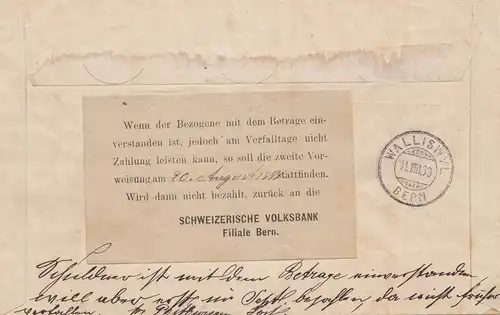 Wenn der Bezogene mit dem Betrage ein-
verstanden ist, jedoch am Verfalltage nicht
Zahlung leisten kann, so soll die zweite Vor-
weisung am 20. August stattfinden.
Wird dann nicht bezahlt, zurück an die
SCHWEIZERISCHE VOLKSBANK
Filiale Bern.
WALLISWYL
11.VIII.93
BERN
Schuldner ist mit dem Betrage einverstanden
will aber erst im Sept. bezahlen, da nicht früher
verfallen.